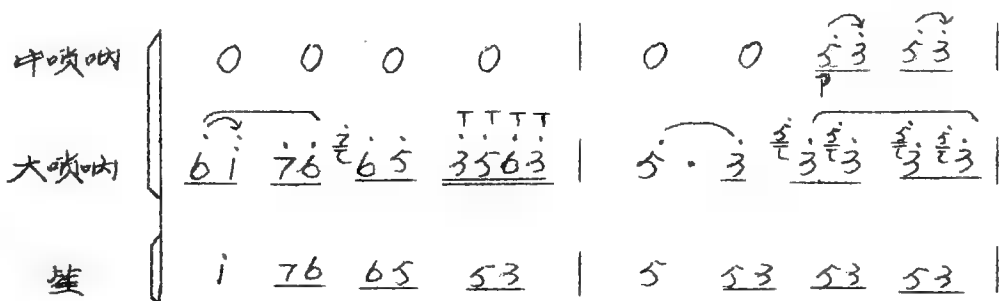 中唢呐 0 0 0 0 | 0 0 5̇3̇ 5̇3̇ |
p
T T T T
大唢呐 6̇i̇ 7̇6̇ 7̇ 6̇5̇ 3̇5̇6̇3̇ | 5̇ · 3̇ 5̇ 3̇ 5̇ 3̇ 5̇ 3̇ 5̇ 3̇ |
笙 i 76 65 53 | 5 53 53 53 |